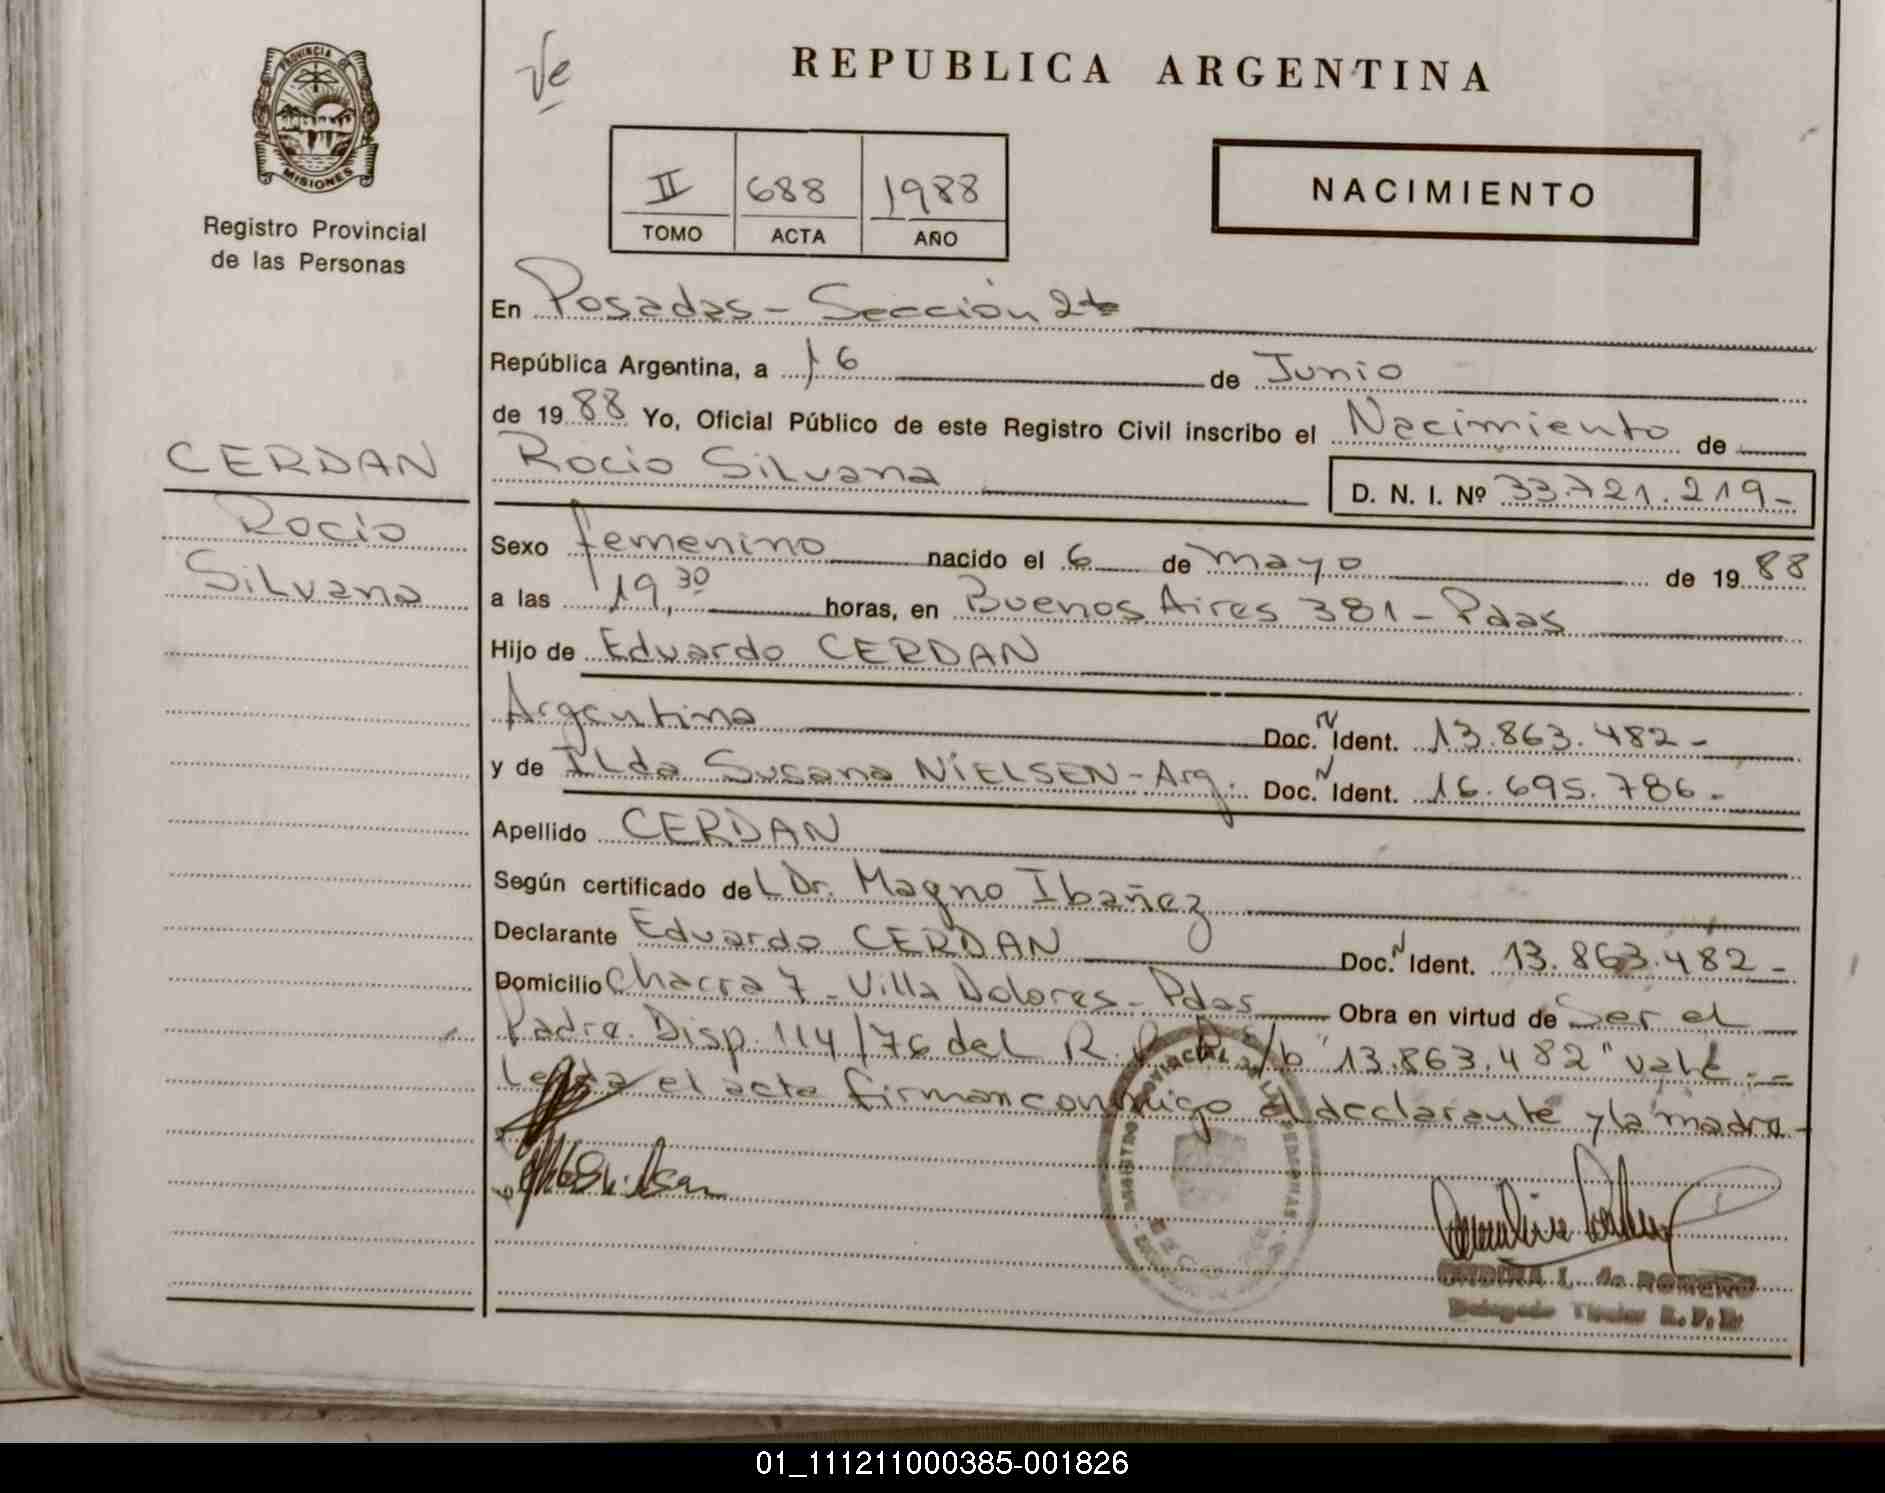 Ve
REPUBLICA ARGENTINA
PROVINCIA DE
MISIONES
Registro Provincial
de las Personas
II 688 1988
TOMO ACTA AÑO
NACIMIENTO
En Posadas - Sección 2da
República Argentina, a 16 de Junio
de 19 88 Yo, Oficial Público de este Registro Civil inscribo el Nacimiento de
CERDAN
Rocio
Silvana
Rocio Silvana D. N. I. Nº 33.721.219-
Sexo femenino nacido el 6 de mayo de 19 88
a las 19,30 horas, en Buenos Aires 381 - Pdas
Hijo de Eduardo CERDAN
Argentino Doc. N Ident. 13.863.482-
y de Ilda Susana NIELSEN - Arg. Doc. N Ident. 16.695.786-
Apellido CERDAN
Según certificado del Dr. Magno Ibañez
Declarante Eduardo CERDAN Doc. N Ident. 13.863.482-
Domicilio Chacra 7 - Villa Dolores - Pdas Obra en virtud de Ser el
Padre. Disp. 114/76 del R. P. P. s/b "13.863.482" vale.--
Leída el acta firman conmigo el declarante y la madre-
L. de ROMERO
Delegado Titular R.P.P.
01_111211000385-001826